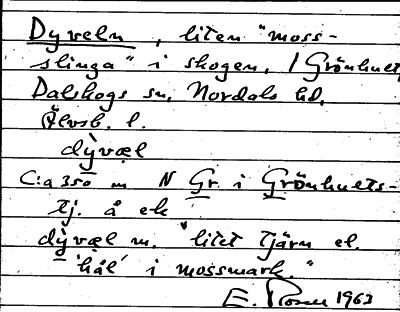 Dyveln, liten "moss-
slinga" i skogen, / Grönhult,
Dalskogs sn, Nordals hd,
Älvsb. l.
dỳvəl
C:a 350 m N Gr. i Grönhults-
tj. å ek
dỳvəl m. "litet tjärn el.
'hål' i mossmark."
E. 1963